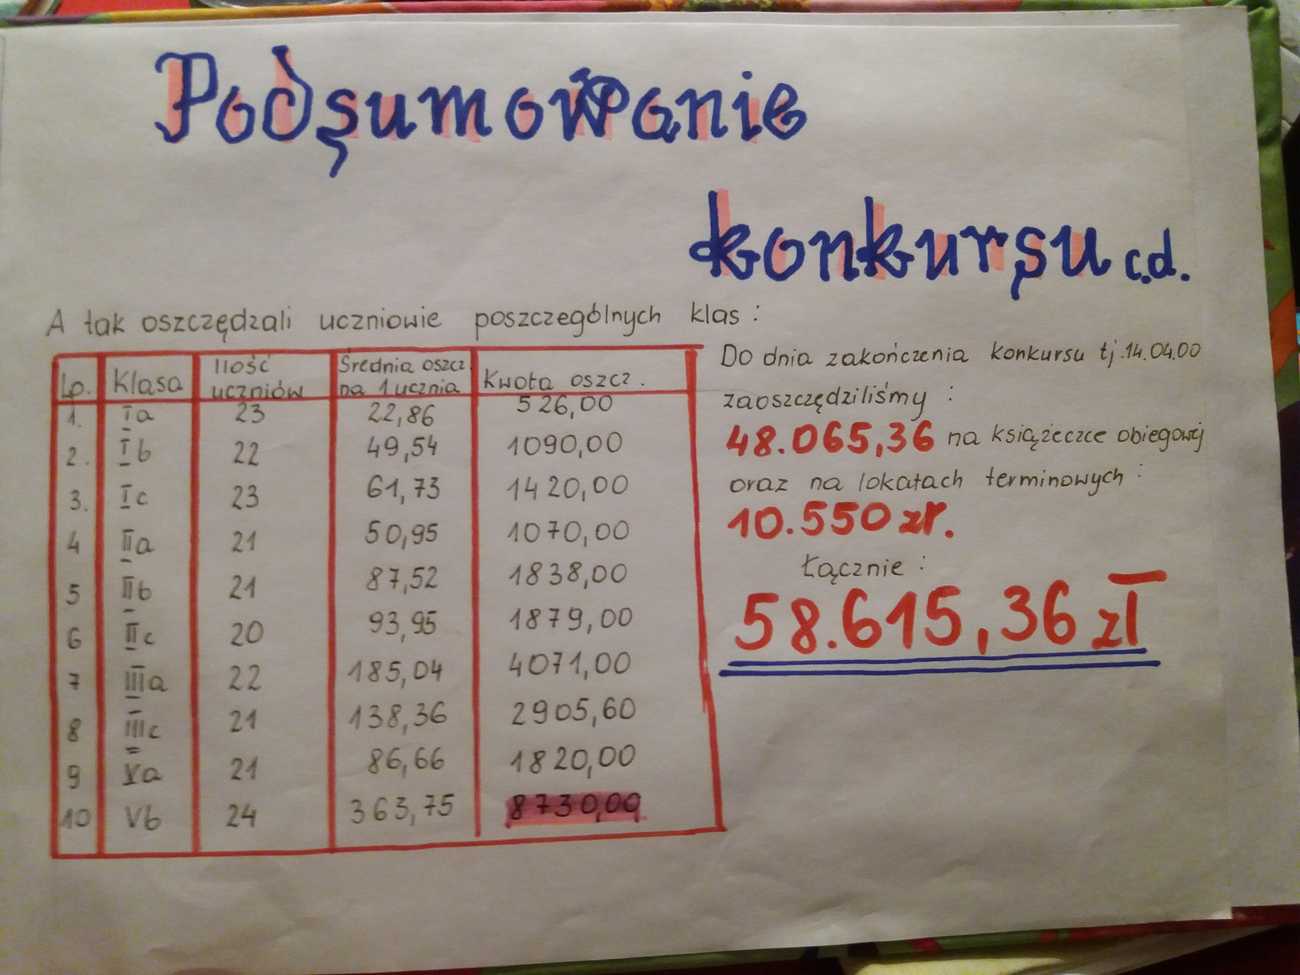 Podsumowanie
konkursu c.d.
A tak oszczędzali uczniowie poszczególnych klas :
Lp. Klasa Ilość uczniów Średnia oszcz. na 1 ucznia Kwota oszcz.
1. Ia 23 22,86 526,00
2. Ib 22 49,54 1090,00
3. Ic 23 61,73 1420,00
4 IIa 21 50,95 1070,00
5 IIb 21 87,52 1838,00
6 IIc 20 93,95 1879,00
7 IIIa 22 185,04 4071,00
8 IIIc 21 138,36 2905,60
9 Va 21 86,66 1820,00
10 Vb 24 363,75 8730,00
Do dnia zakończenia konkursu tj.14.04.00
zaoszczędziliśmy :
48.065,36 na książeczce obiegowej
oraz na lokatach terminowych :
10.550 zł.
Łącznie :
58.615,36 zł